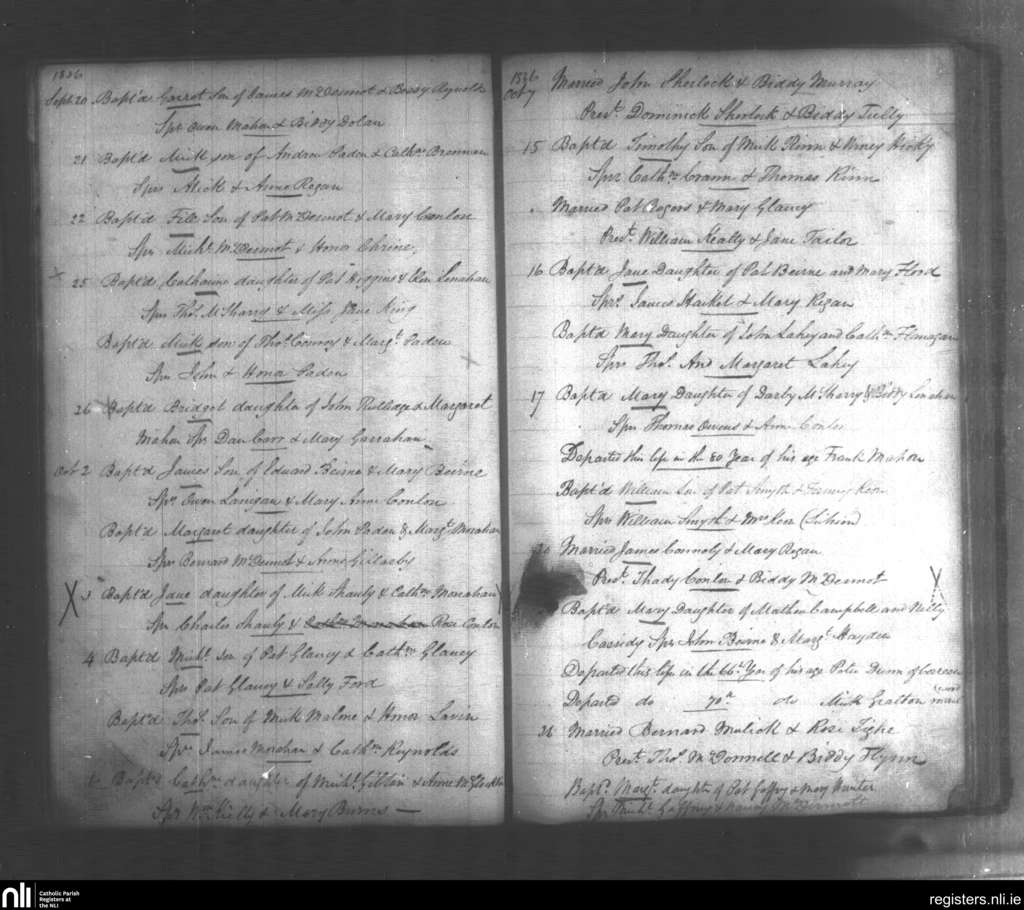 1836
Sept. 20 Bapt'd Garret Son of James McDermot & Bessy Reynolds
Spr Owen Mahon & Biddy Dolan
21 Bapt'd Mick son of Andrew Padon & Cathn Brennan
Sprs Mick & Anne Regan
22 Bapt'd Felx Son of Pat McDermot & Mary Conlon
Sprs Michl McDermot & Honor
25 Bapt'd Catharine daughter of Pat Higgins & Lenahan
Sprs Thos. McSharry & Miss Jane King
Bapt'd Mick son of Thos. Conroy & Margt. Padon
Sprs John & Honor Padon
26 Bapt'd Bridget daughter of John Rutledge & Margaret
Mahon Sprs Dan Carr & Mary Garrahan
Oct 2 Bapt'd James Son of Edward Beirne & Mary Beirne
Sprs Owen Lanigan & Mary Anne Conlon
Bapt'd Margaret daughter of John Padon & Margt Monahan
Sprs Bernard McDermot & Anne
3 Bapt'd Jane daughter of Mick Shanly & Cathn Monahan
Sprs Charles Shanly & Rose Conlon
4 Bapt'd Michl. son of Pat Glancy & Cathn Glancy
Sprs Pat Glancy & Sally Ford
Bapt'd Thos. Son of Mick Malone & Honor Lavin
Sprs James Monahan & Cathn Reynolds
Bapt'd Cathn daughter of Michl. Giblin & Anne
Spr Wm Kielly & Mary Burns —
1836
Oct 7 Married John Sherlock & Biddy Murray
Prest. Dominick Sherlock & Biddy Tully
15 Bapt'd Timothy Son of Mick Rinn & Winey
Sprs Cathn Crann & Thomas Rinn
Married Pat Rogers & Mary Glancy
Prest. William Healy & Jane Tailor
16 Bapt'd Jane Daughter of Pat Beirne and Mary Flood
Sprs. James & Mary Regan
Bapt'd Mary Daughter of John Lahey and Cathn Flanagan
Sprs Thos. And Margaret Lahey
17 Bapt'd Mary Daughter of Darby McSharry & Biddy Lenahan
Sprs Thomas Owens & Ann Conlon
Departed this life in the 80 Year of his age Frank Mahon
Bapt'd William Son of Pat Smyth & Fanny Keon
Sprs William Smyth & Mrs Keon
20 Married James Connoly & Mary Regan
Prest. Thady Conlon & Biddy McDermot
Bapt'd Mary Daughter of Mathew Campbell and Nelly
Cassidy Sprs John Beirne & Margt Hayden
Departed this life in the 66th Year of his age Peter Dunn of
Departed do 70th do Mick Gralton
26 Married Bernard Mulick & Rose Tighe
Prest. Thos. McDonnell & Biddy Flynn
Bapt. Margt. daughter of Pat Gaffney & Mary Hunter
Sprs Michl. Gaffney & McDermott
nli
Catholic Parish
Registers at
the NLI
registers.nli.ie